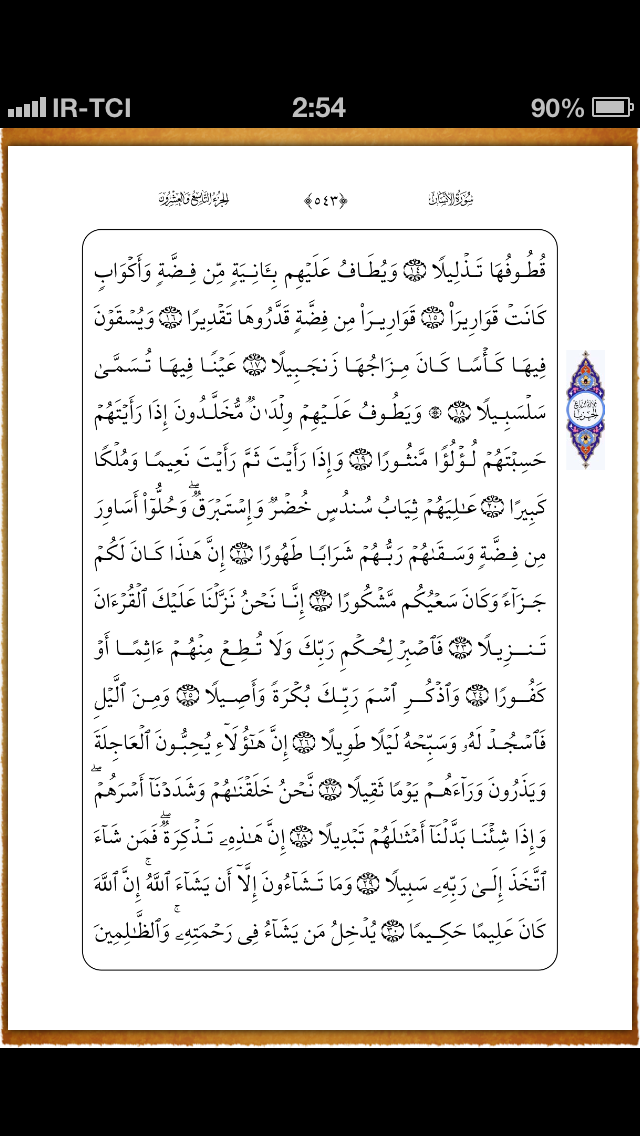 IR-TCI 2:54 90%
سُورَةُ الإِنسَان ﴿٥٤٣﴾ الجُزءُ التَّاسِعُ وَالعِشْرُونَ
قُطُوفُهَا تَذْلِيلًا ١٤ وَيُطَافُ عَلَيْهِم بِـَٔانِيَةٍ مِّن فِضَّةٍ وَأَكْوَابٍ
كَانَتْ قَوَارِيرَا۠ ١٥ قَوَارِيرَا۟ مِن فِضَّةٍ قَدَّرُوهَا تَقْدِيرًا ١٦ وَيُسْقَوْنَ
فِيهَا كَأْسًا كَانَ مِزَاجُهَا زَنجَبِيلًا ١٧ عَيْنًا فِيهَا تُسَمَّىٰ
سَلْسَبِيلًا ١٨ ۞ وَيَطُوفُ عَلَيْهِمْ وِلْدَٰنٌ مُّخَلَّدُونَ إِذَا رَأَيْتَهُمْ
حَسِبْتَهُمْ لُؤْلُؤًا مَّنثُورًا ١٩ وَإِذَا رَأَيْتَ ثَمَّ رَأَيْتَ نَعِيمًا وَمُلْكًا
كَبِيرًا ٢٠ عَٰلِيَهُمْ ثِيَابُ سُندُسٍ خُضْرٌ وَإِسْتَبْرَقٌۖ وَحُلُّوٓا۟ أَسَاوِرَ
مِن فِضَّةٍ وَسَقَىٰهُمْ رَبُّهُمْ شَرَابًا طَهُورًا ٢١ إِنَّ هَٰذَا كَانَ لَكُمْ
جَزَآءً وَكَانَ سَعْيُكُم مَّشْكُورًا ٢٢ إِنَّا نَحْنُ نَزَّلْنَا عَلَيْكَ ٱلْقُرْءَانَ
تَنزِيلًا ٢٣ فَٱصْبِرْ لِحُكْمِ رَبِّكَ وَلَا تُطِعْ مِنْهُمْ ءَاثِمًا أَوْ
كَفُورًا ٢٤ وَٱذْكُرِ ٱسْمَ رَبِّكَ بُكْرَةً وَأَصِيلًا ٢٥ وَمِنَ ٱلَّيْلِ
فَٱسْجُدْ لَهُۥ وَسَبِّحْهُ لَيْلًا طَوِيلًا ٢٦ إِنَّ هَٰٓؤُلَآءِ يُحِبُّونَ ٱلْعَاجِلَةَ
وَيَذَرُونَ وَرَآءَهُمْ يَوْمًا ثَقِيلًا ٢٧ نَّحْنُ خَلَقْنَٰهُمْ وَشَدَدْنَآ أَسْرَهُمْۖ
وَإِذَا شِئْنَا بَدَّلْنَآ أَمْثَٰلَهُمْ تَبْدِيلًا ٢٨ إِنَّ هَٰذِهِۦ تَذْكِرَةٌۖ فَمَن شَآءَ
ٱتَّخَذَ إِلَىٰ رَبِّهِۦ سَبِيلًا ٢٩ وَمَا تَشَآءُونَ إِلَّآ أَن يَشَآءَ ٱللَّهُۚ إِنَّ ٱللَّهَ
كَانَ عَلِيمًا حَكِيمًا ٣٠ يُدْخِلُ مَن يَشَآءُ فِى رَحْمَتِهِۦۚ وَٱلظَّٰلِمِينَ